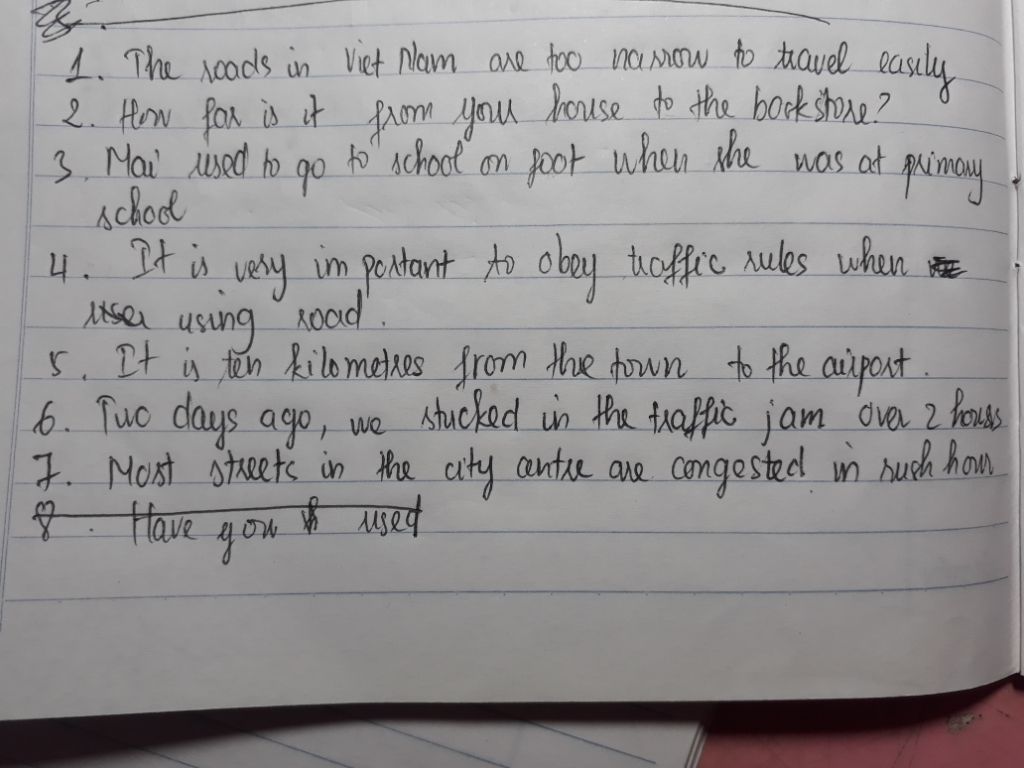 1. The roads in Viet Nam are too narrow to travel easily
2. How far is it from your house to the bookstore?
3. Mai used to go to school on foot when she was at primary
school
4. It is very important to obey traffic rules when
user using road.
5. It is ten kilometres from the town to the airport.
6. Two days ago, we stucked in the traffic jam over 2 hours
7. Most streets in the city centre are congested in rush hour
8. Have you used